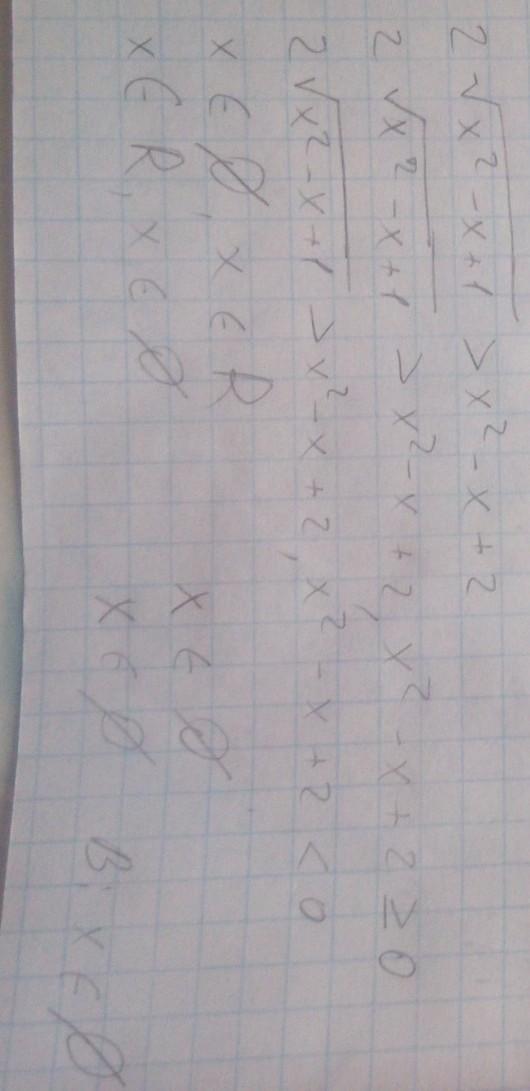 2√(x² - x + 1) > x² - x + 2
2√(x² - x + 1) > x² - x + 2, x² - x + 2 ≥ 0
2√(x² - x + 1) > x² - x + 2, x² - x + 2 < 0
x ∈ ∅, x ∈ R
x ∈ R, x ∈ ∅
x ∈ ∅
x ∈ ∅
В: x ∈ ∅